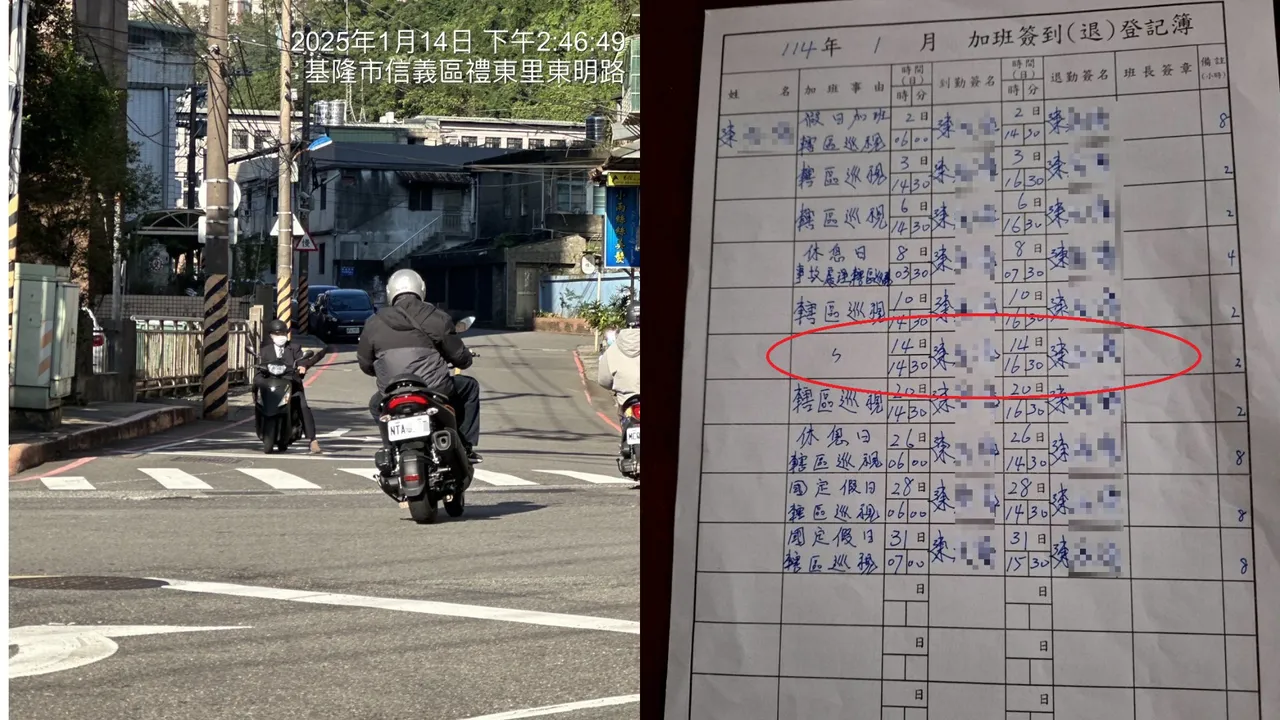 2025年1月14日 下午2:46:49
基隆市信義區禮東里東明路
NTA
114年 1 月 加班簽到(退)登記簿
姓名 加班事由 時間(日) 時 分 到勤簽名 時間(日) 時 分 退勤簽名 班長簽章 備註(小時)
假日加班 2日 2日
轄區巡視 06 00 14 30 8
3日 3日
轄區巡視 14 30 16 30 2
6日 6日
轄區巡視 14 30 16 30 2
休息日 8日 8日
事故處理轄區巡視 03 30 07 30 4
10日 10日
轄區巡視 14 30 16 30 2
14日 14日
〃 14 30 16 30 2
20日 20日
轄區巡視 14 30 16 30 2
休息日 26日 26日
轄區巡視 06 00 14 30 8
國定假日 28日 28日
轄區巡視 06 00 14 30 8
國定假日 31日 31日
轄區巡視 07 00 15 30 8
日 日
日 日
日 日